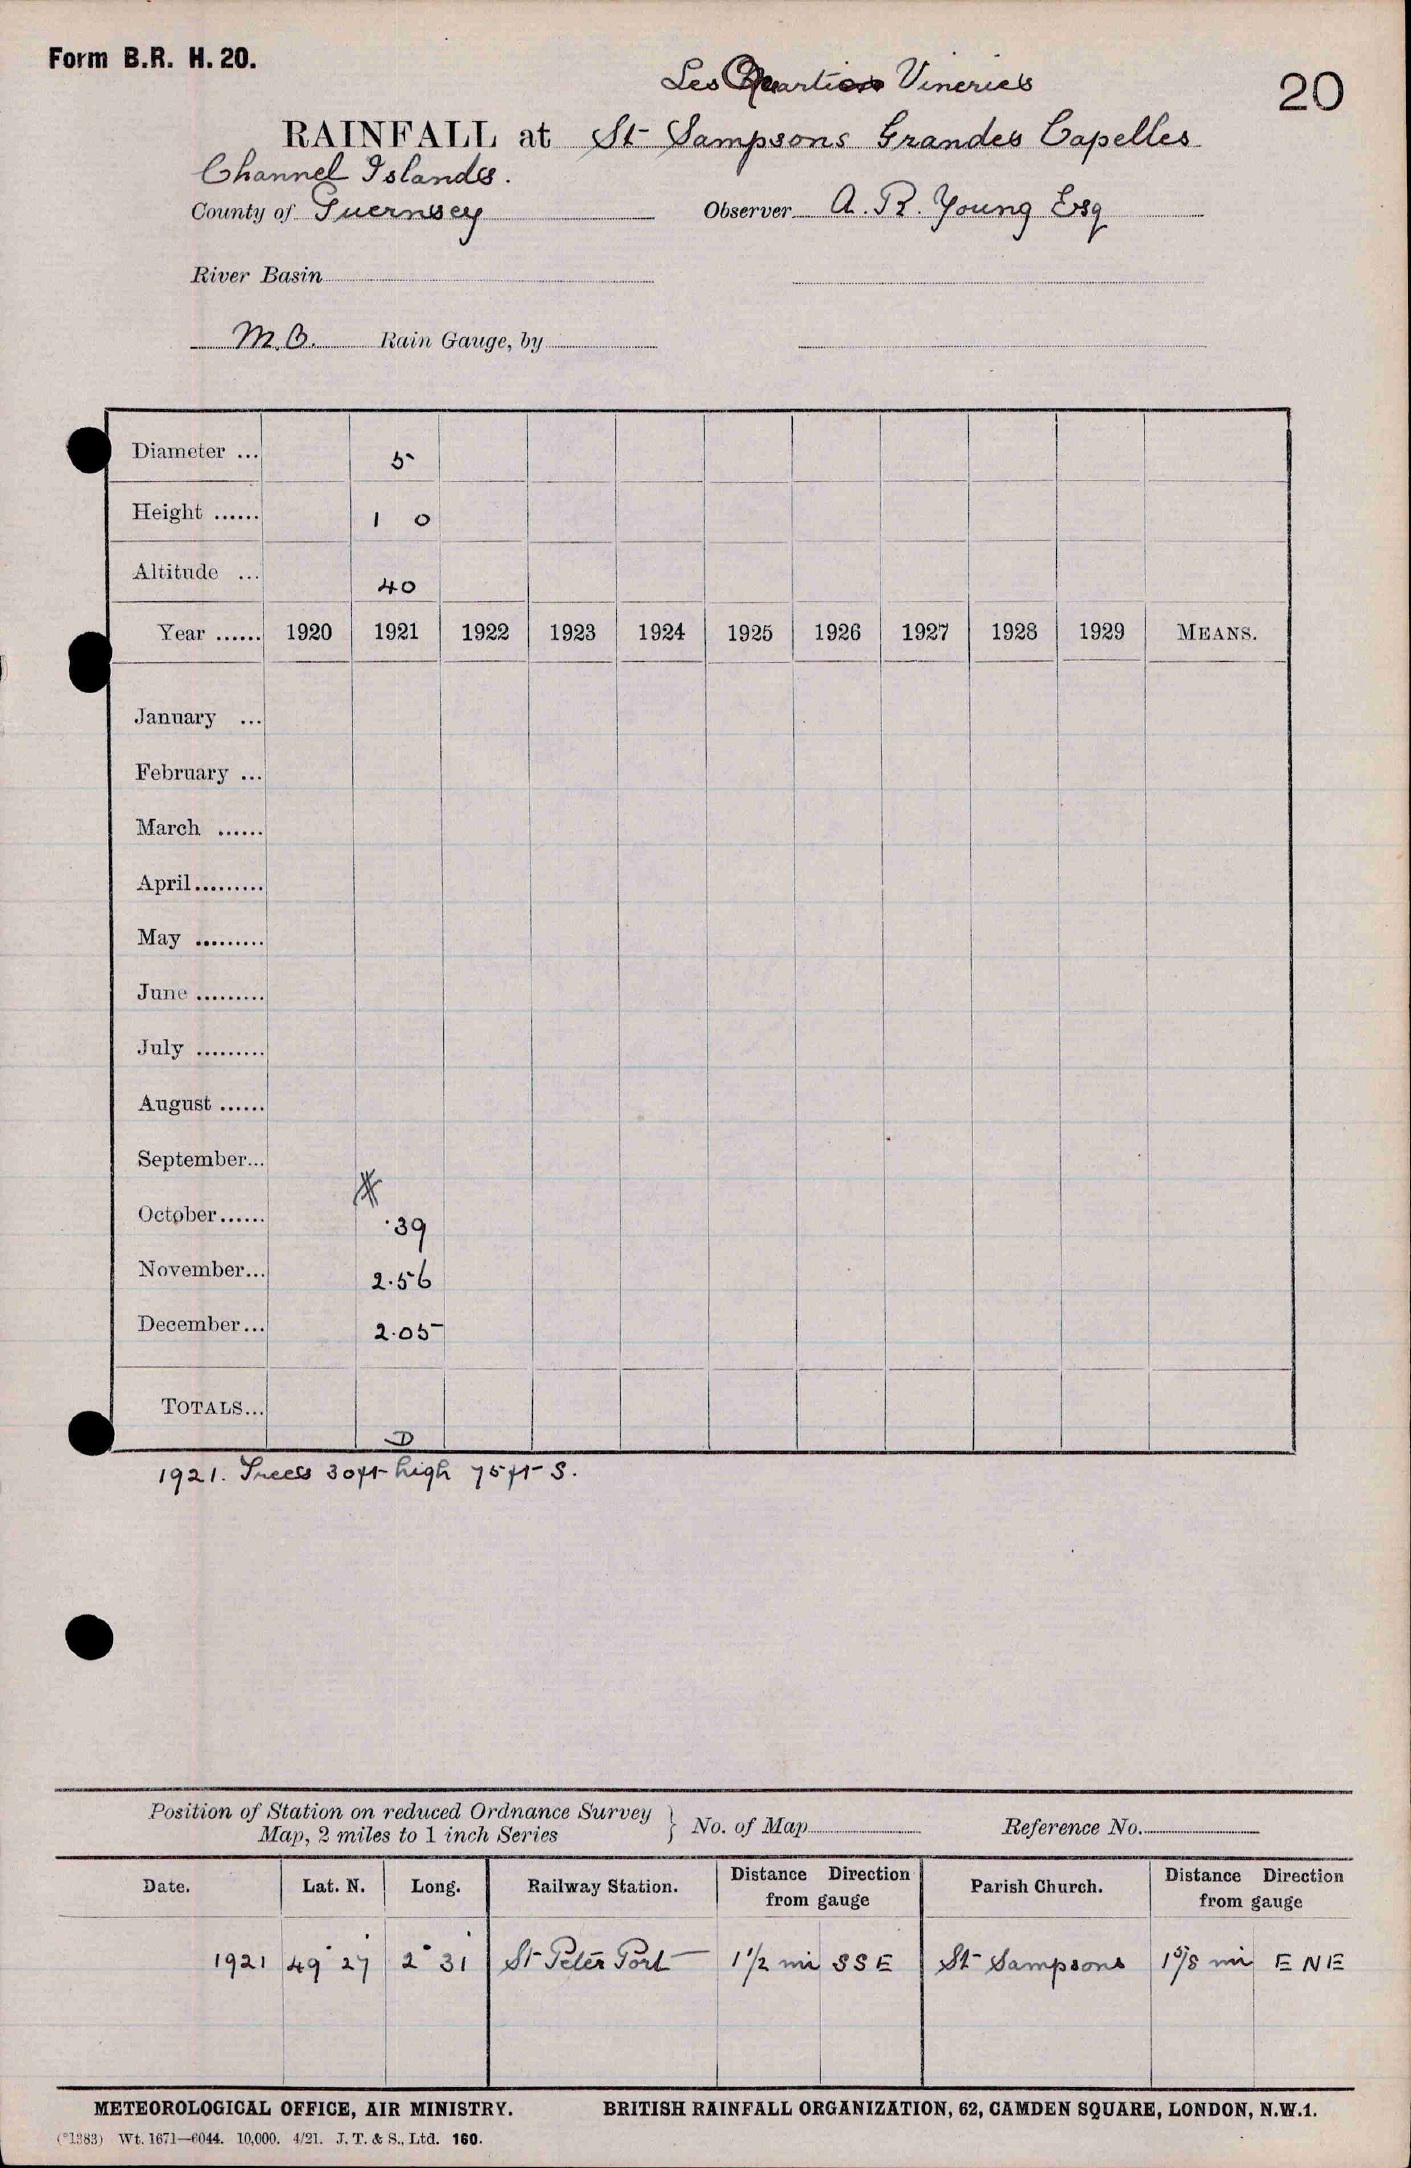 Form B.R. H. 20.
20
Les Quartiers Vineries
RAINFALL at St Sampsons Grandes Capelles
Channel Islands.
County of Guernsey Observer A. R. Young Esq
River Basin
M.O. Rain Gauge, by
Diameter ... 5
Height ...... 1 0
Altitude ... 40
Year ...... 1920 1921 1922 1923 1924 1925 1926 1927 1928 1929 MEANS.
January ...
February ...
March ......
April.........
May .........
June .........
July .........
August ......
September...
October...... .39
November... 2.56
December... 2.05
TOTALS...
D
1921. Trees 30ft high 75ft S.
Position of Station on reduced Ordnance Survey
Map, 2 miles to 1 inch Series } No. of Map Reference No.
Date. Lat. N. Long. Railway Station. Distance Direction from gauge Parish Church. Distance Direction from gauge
1921 49° 27' 2° 31' St Peter Port 1 1/2 mi SSE St Sampsons 1 5/8 mi ENE
METEOROLOGICAL OFFICE, AIR MINISTRY. BRITISH RAINFALL ORGANIZATION, 62, CAMDEN SQUARE, LONDON, N.W.1.
(*1383) Wt. 1671—6044. 10,000. 4/21. J. T. & S., Ltd. 160.